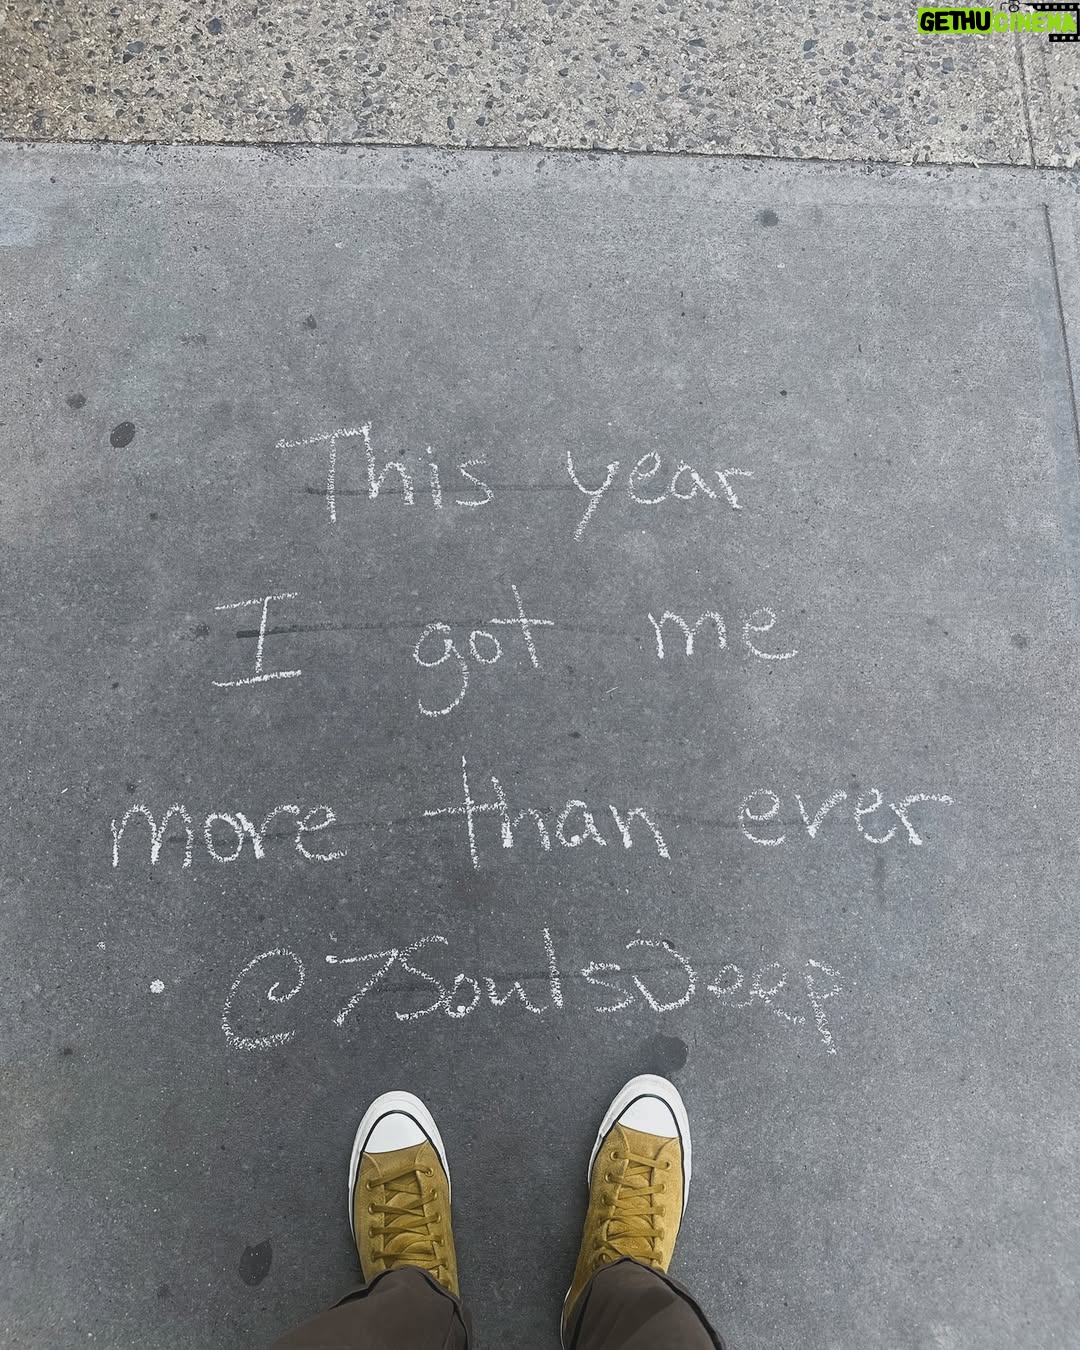 GETHUCINEMA
This year
I got me
more than ever
• @7SoulsDeep